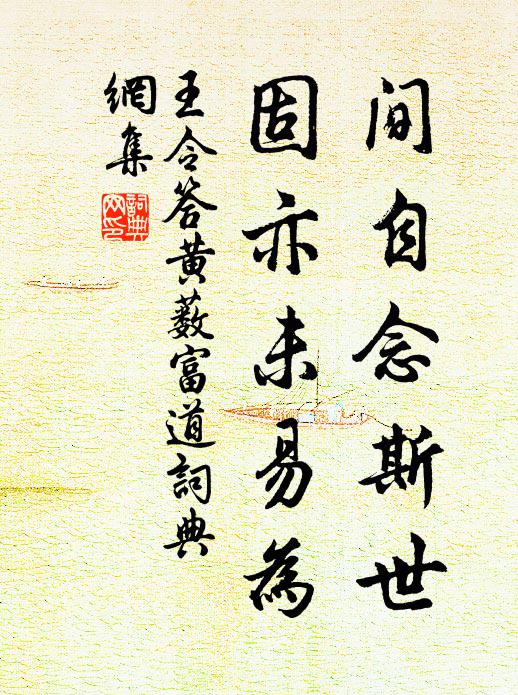 间自念斯世
固亦未易為
王令答黄藪富道詞典
網集
詞典
网印